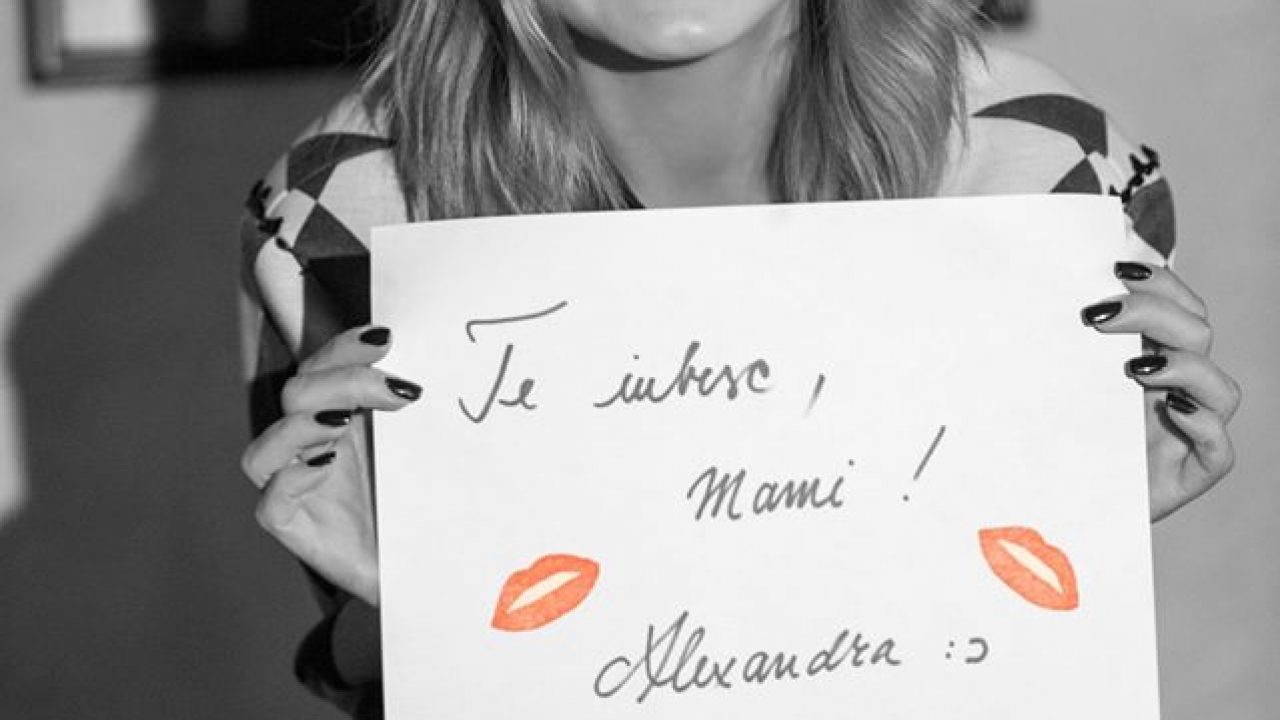 Te iubesc,
Mami!
Alexandra :)